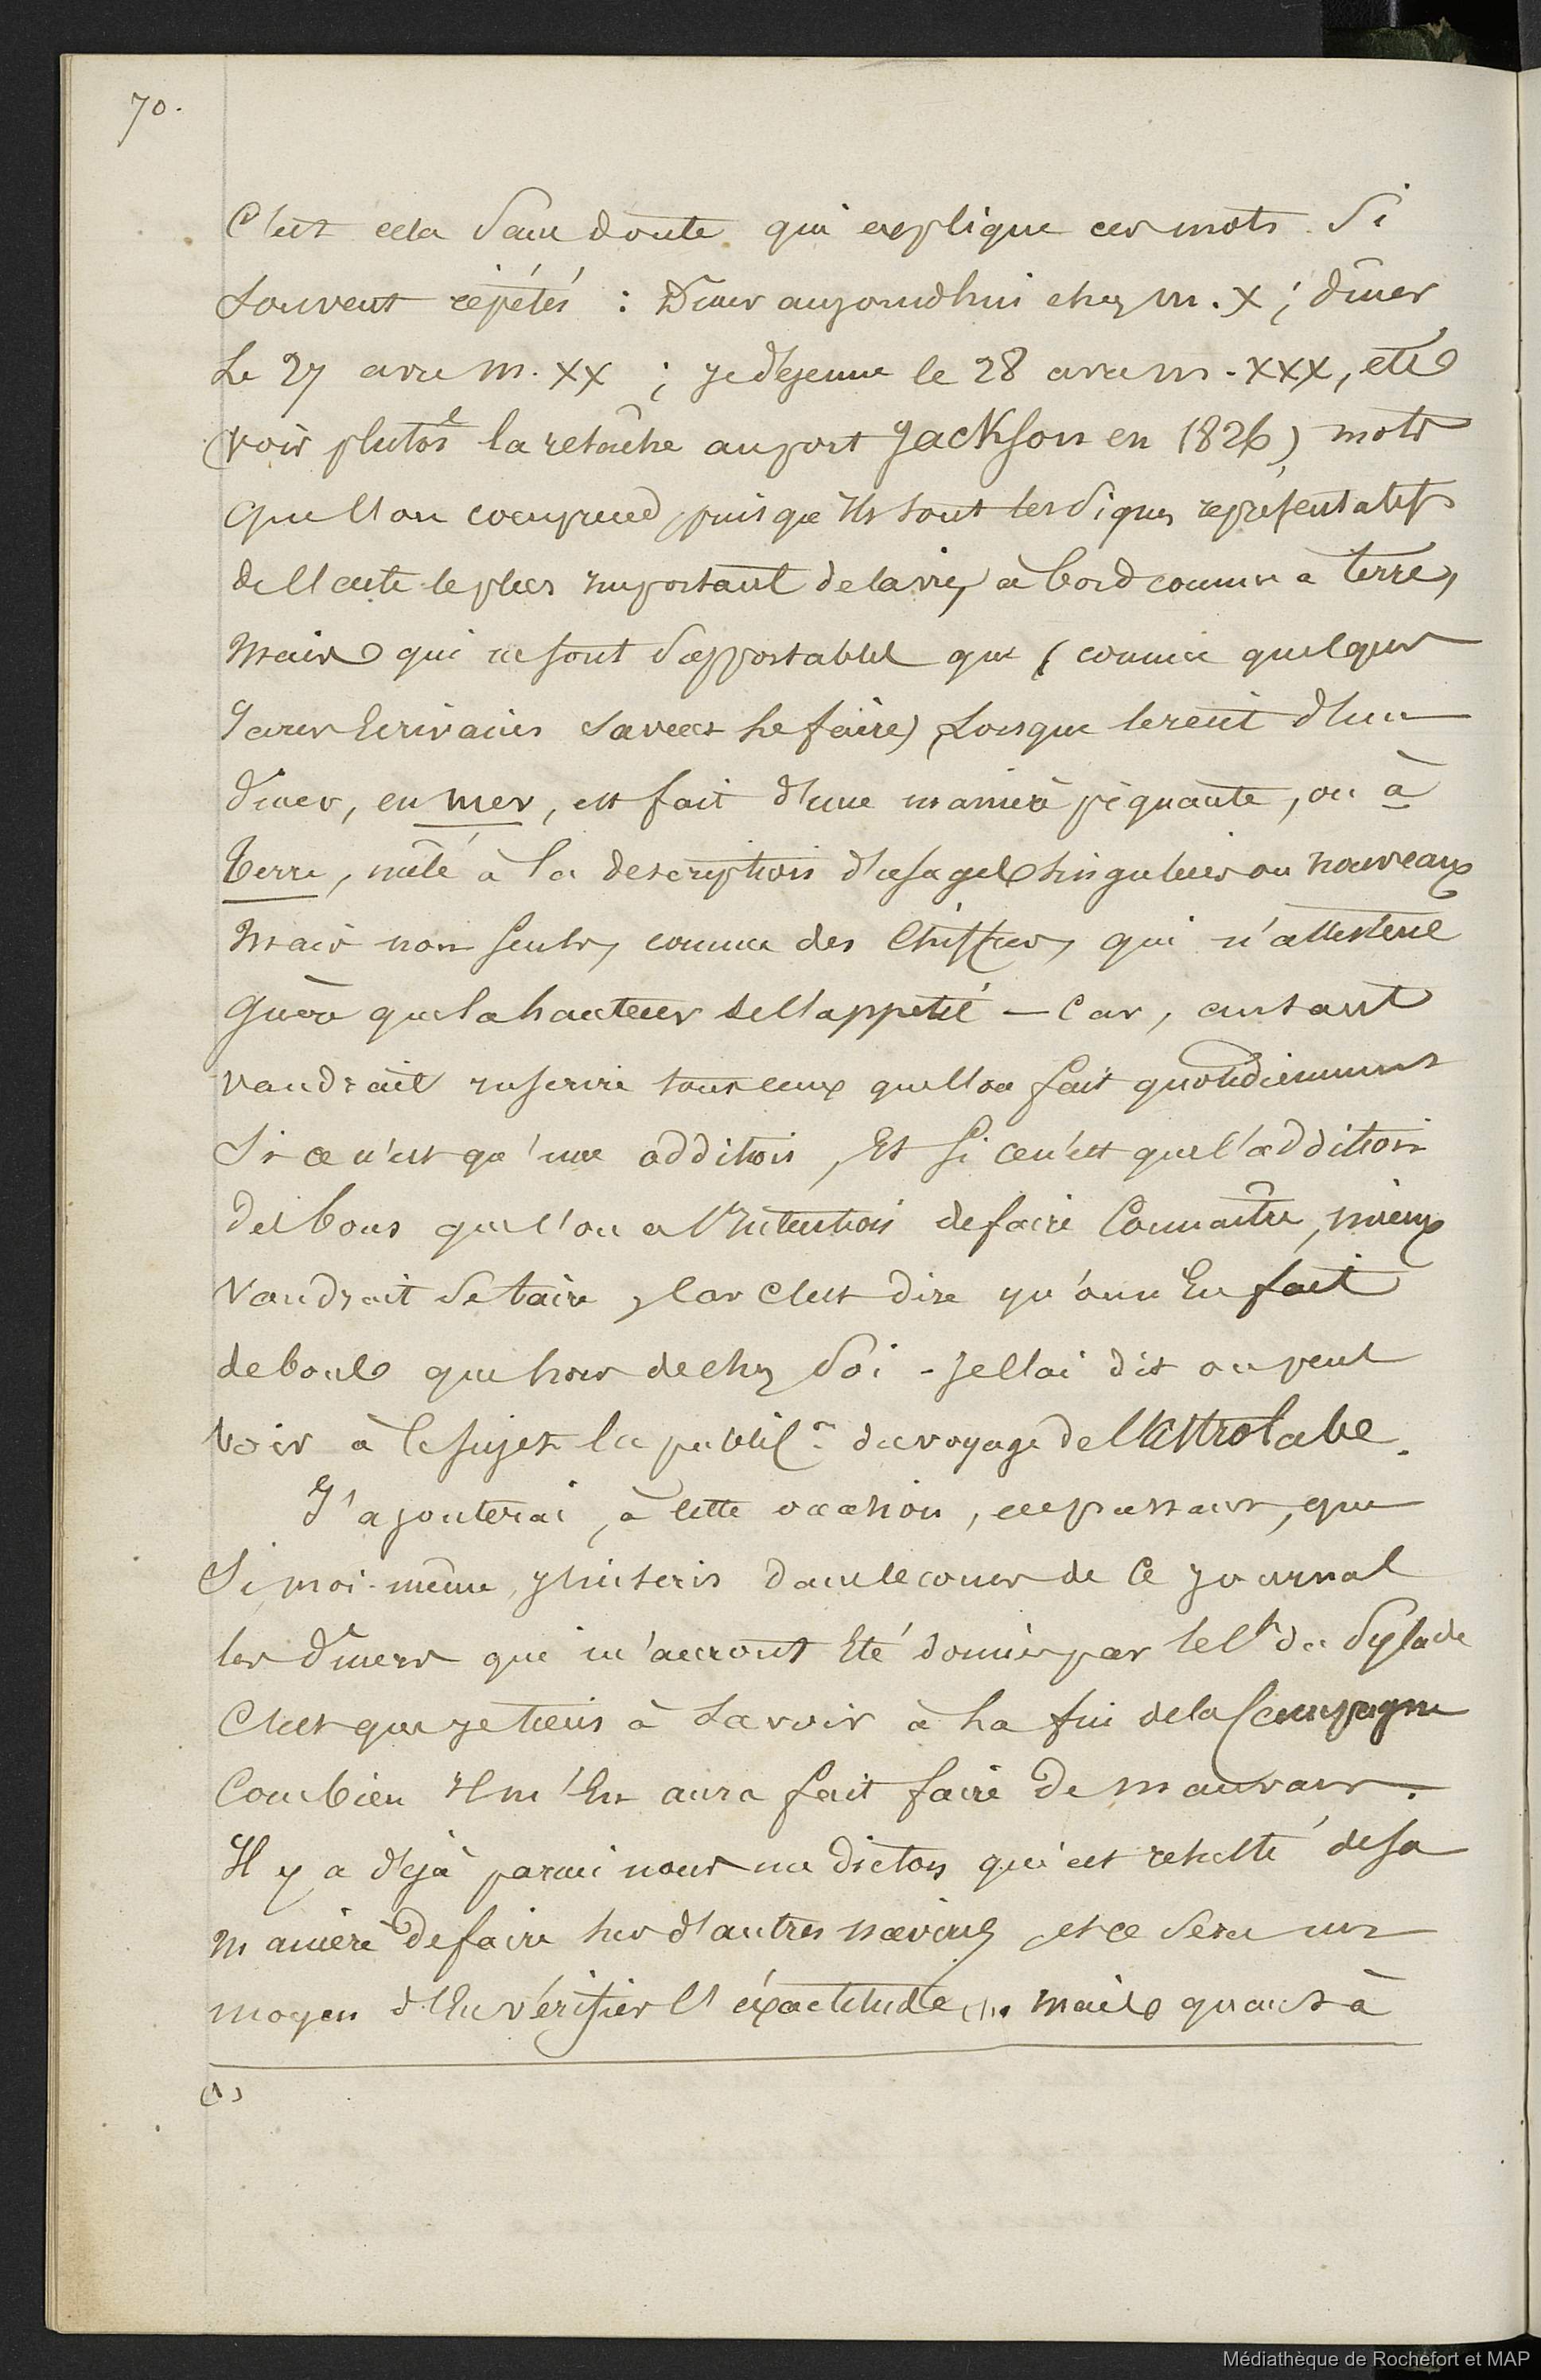 70.
C'est cela sans doute qui explique ces mots si
souvent répétés : Dîner aujourdhui chez m. X ; dîner
Le 27 avec m. XX ; je déjeune le 28 avec m. XXX, etc
(voir plutôt la relâche au port Jackson en 1826) mots
que l'on comprend puisqu'ils sont les signes représentatifs
de l'acte le plus important de la vie, à bord comme à terre,
mais qui ne sont supportables que (comme quelques
rares Ecrivains savent le faire) Lorsque le récit d'un
dîner, en mer, est fait d'une manière piquante, ou à
terre, mêlé à la description d'usages singuliers ou nouveaux
mais non seuls, comme des chiffres, qui n'attestent
guère que la hauteur de l'appetit — Car, autant
vaudrait inscrire tous ceux que l'on fait quotidiennement
si ce n'est qu'une addition, Et si ce n'est que l'addition
des bons que l'on a l'intention de faire Connaître, mieux
vaudrait se taire, car c'est dire qu'on n'En fait
de bons que hors de chez soi - Je l'ai dit on peut
voir à ce sujet la public.on du voyage de l'Astrolabe.
J'ajouterai, à cette occasion, en passant, que
Si moi-même, j'inscris dans le cours de ce journal
les dîners qui m'auront été donnés par le Ct du Pylade
C'est que je tiens à savoir à la fin de la Campagne
Combien Il m'En aura fait faire de mauvais.
Il y a déjà parmi nous un dicton qui est resulté de sa
manière de faire sur d'autres navires, et ce sera un
moyen d'En vérifier l'éxactitude (1). Mais quant à
(1)
Médiathèque de Rochefort et MAP